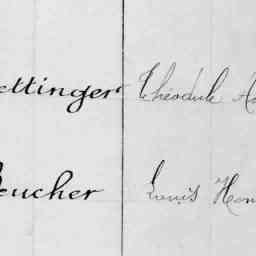 ettinger Théodule A
eucher Louis Hon